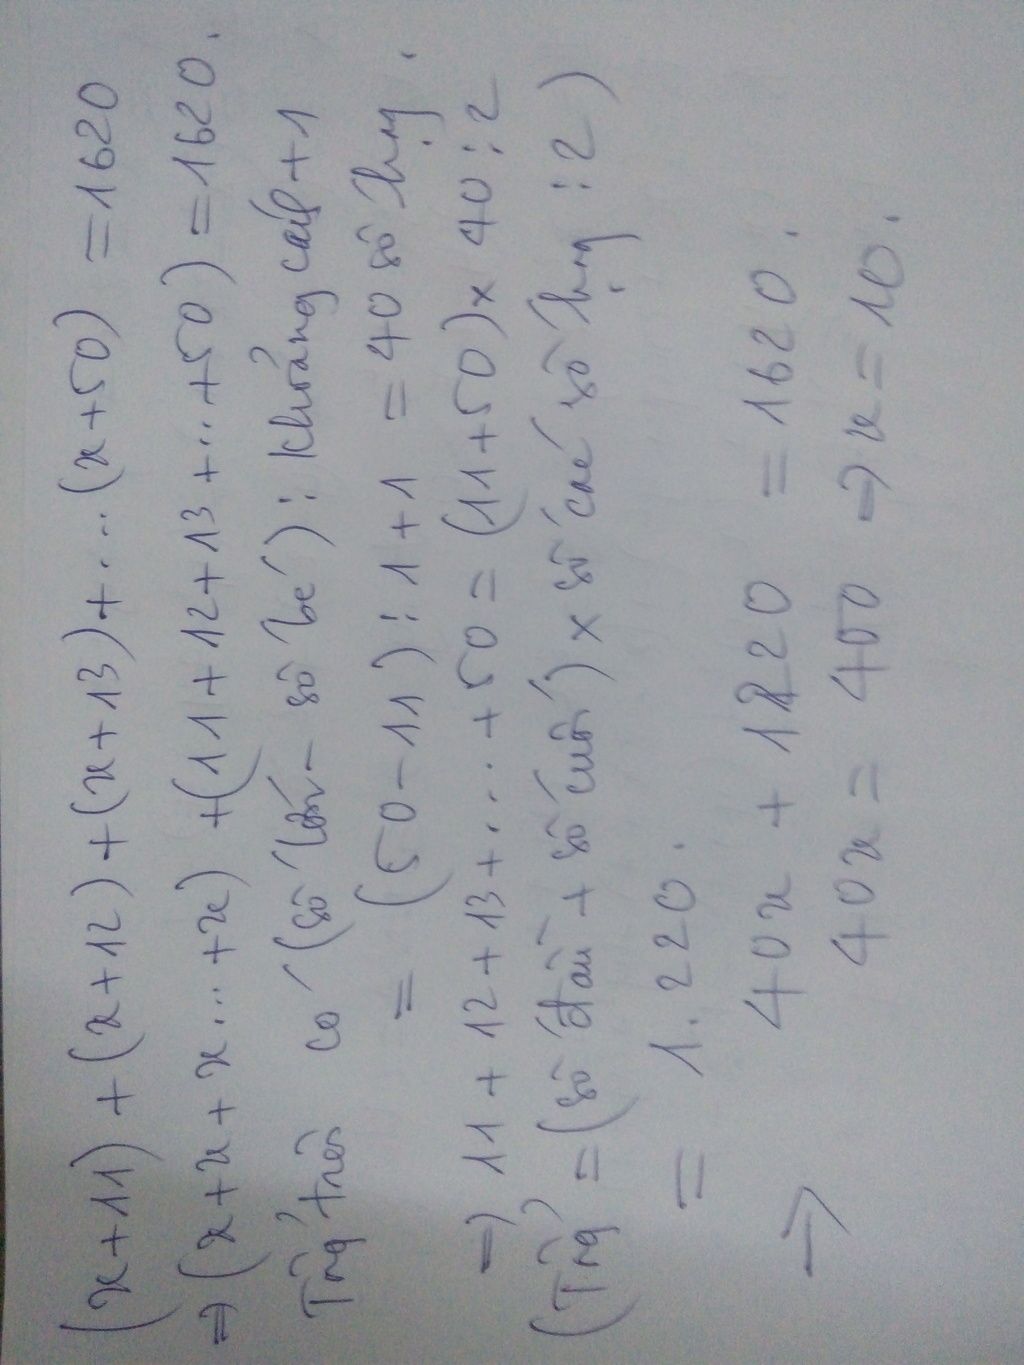 (x+11) + (x+12) + (x+13) + ... (x+50) = 1620
⇒ (x + x + x ... + x) + (11 + 12 + 13 + ... + 50) = 1620.
Tổng trên có (số lớn - số bé) : khoảng cách + 1
= (50 - 11) : 1 + 1 = 40 số hạng.
⇒ 11 + 12 + 13 + ... + 50 = (11 + 50) x 40 : 2
(Tổng = (số đầu + số cuối) x số các số hạng : 2)
= 1.220.
→ 40x + 1220 = 1620.
40x = 400 ⇒ x = 10.